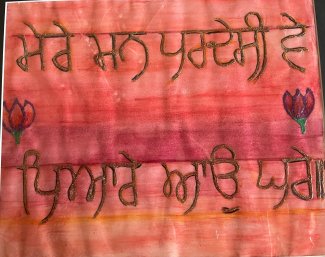 ਮੇਰੇ ਮਨ ਪਰਦੇਸੀ ਵੇ
ਪਿਆਰੇ ਆਉ ਘਰੇ॥